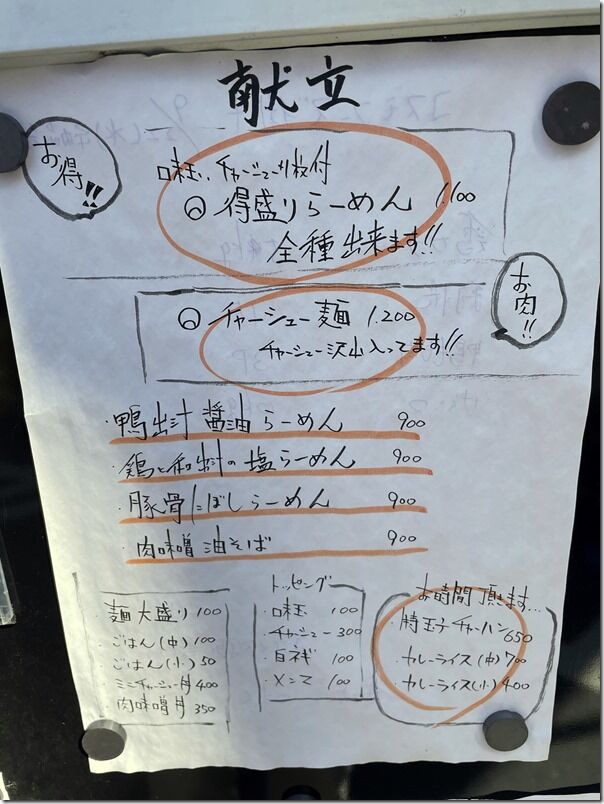 献立
お得!!
味玉、チャーシュー4枚付
得盛りらーめん 1.100
全種出来ます!!
お肉!!
チャーシュー麺 1.200
チャーシュー沢山入ってます!!
・鴨出汁 醤油らーめん 900
・鶏と和出汁の塩らーめん 900
・豚骨にぼしらーめん 900
・肉味噌油そば 900
・麺大盛り 100
・ごはん(中) 100
・ごはん(小) 50
・ミニチャーシュー丼 400
・肉味噌丼 350
トッピング
・味玉 100
・チャーシュー 300
・白ネギ 100
・メンマ 100
お時間頂きます...
・特玉子チャーハン 650
・カレーライス(中) 700
・カレーライス(小) 400